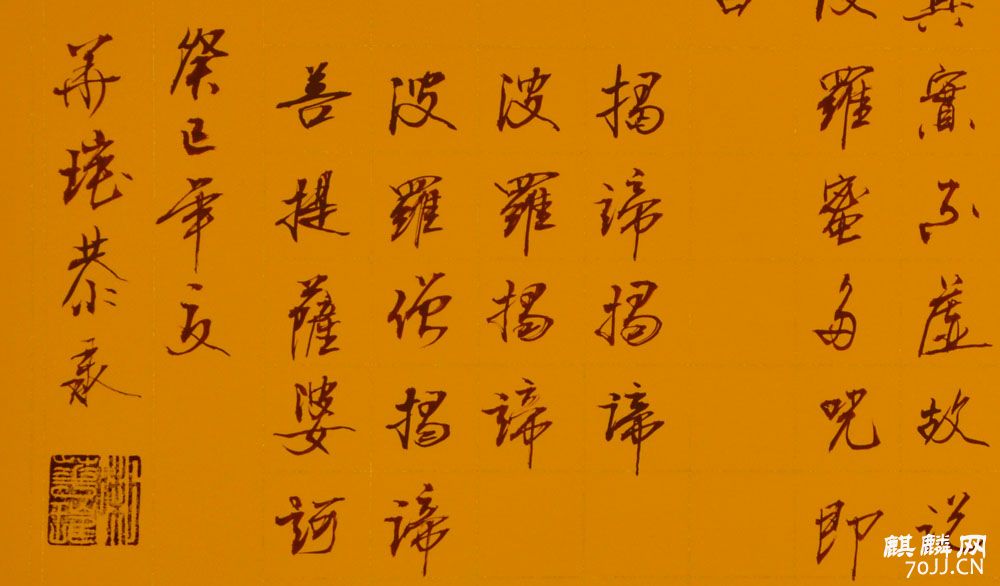 實不虛故說
羅蜜多呪即
揭諦揭諦
波羅揭諦
波羅僧揭諦
菩提薩婆訶
癸巳年夏
華恭录
麒麟网
70JJ.CN